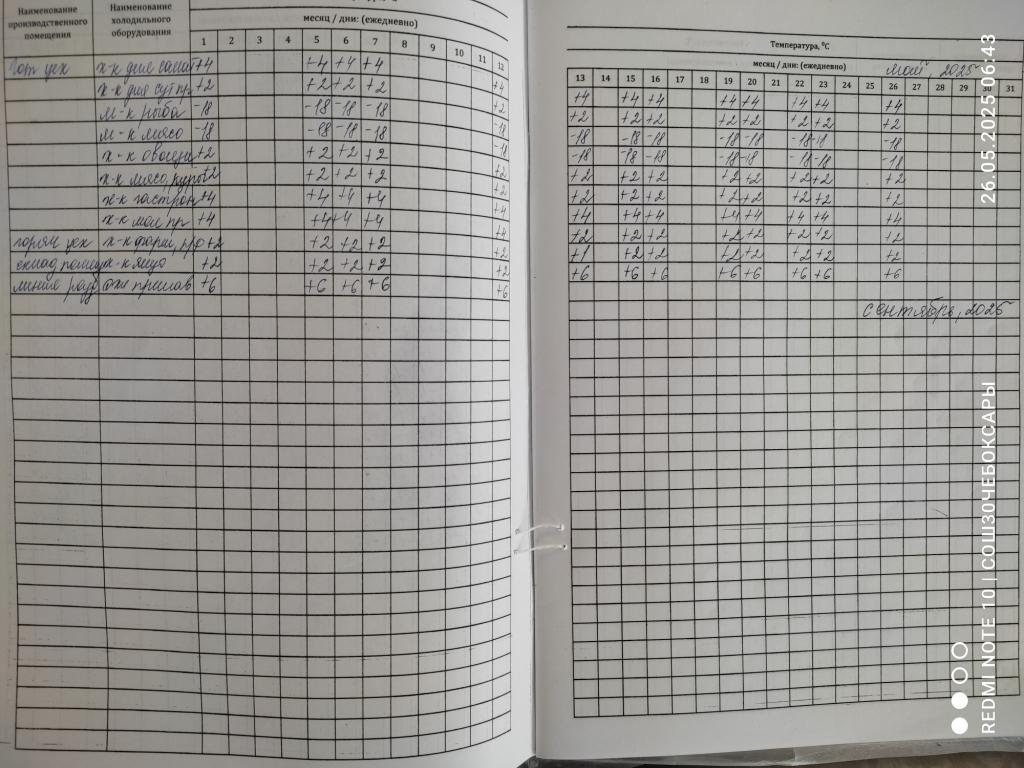 Наименование производственного помещения
Наименование холодильного оборудования
месяц / дни: (ежедневно)
1 2 3 4 5 6 7 8 9 10 11 12
х-к для салат +4 +4 +4 +4 +4
х-к для сут пр +2 +2 +2 +2 +4
м-к рыба -18 -18 -18 -18 +2
м-к мясо -18 -18 -18 -18 -18
х-к овощи +2 +2 +2 +2 -18
х-к мясо, куры +2 +2 +2 +2 +2
х-к гастроном +4 +4 +4 +4 +2
х-к мол пр +4 +4 +4 +4 +4
горяч цех х-к фарш, +2 +2 +2 +2 +4
склад помещ х-к яйцо +2 +2 +2 +2 +2
линия разд охл прилав +6 +6 +6 +6 +6
Температура, ⁰С
месяц / дни: (ежедневно) май, 2025
13 14 15 16 17 18 19 20 21 22 23 24 25 26 27 28 29 30 31
+4 +4 +4 +4 +4 +4 +4 +4
+2 +2 +2 +2 +2 +2 +2 +2
-18 -18 -18 -18 -18 -18 -18 -18
-18 -18 -18 -18 -18 -18 -18 -18
+2 +2 +2 +2 +2 +2 +2 +2
+2 +2 +2 +2 +2 +2 +2 +2
+4 +4 +4 +4 +4 +4 +4 +4
+2 +2 +2 +2 +2 +2 +2 +2
+1 +2 +2 +2 +2 +2 +2 +2
+6 +6 +6 +6 +6 +6 +6 +6
сентябрь, 2025
REDMI NOTE 10 | СОШ30ЧЕБОКСАРЫ 26.05.2025 06:43